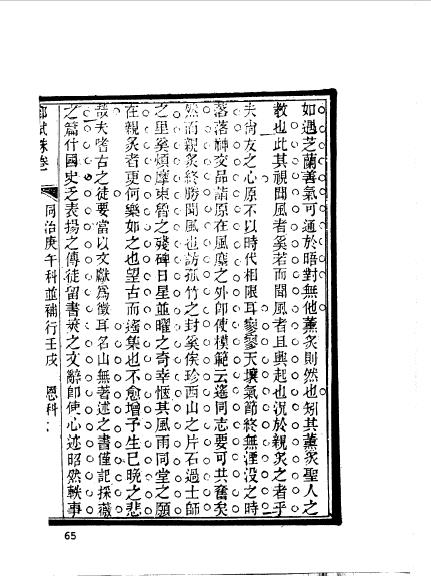 如遇芝蘭善氣可通於晤對無他薰炙則然也矧其薰炙聖人之
教也此其視聞風者奚若而聞風者且興起也況於親炙之者乎
夫尚友之心原不以時代相限耳寥寥天壤氣節終無湮沒之時
落落神交品詣原在風塵之外即使模範云遙同志要可共奮矣
然而親炙終勝聞風也訪孤竹之封奚俟珍西山之片石過士師
之里奚煩摩東魯之殘碑日星並曜之奇幸愜其風雨同堂之願
在親炙者更何樂如之也望古而遙集也不愈增予生已晚之悲
哉夫嗜古之徒要當以文獻為徵耳名山無著述之書僅記採薇
之篇什國史乏表揚之傳徒留書莢之文辭即使心迹昭然軼事
試硃卷
同治庚午科並補行壬戌 恩科
65